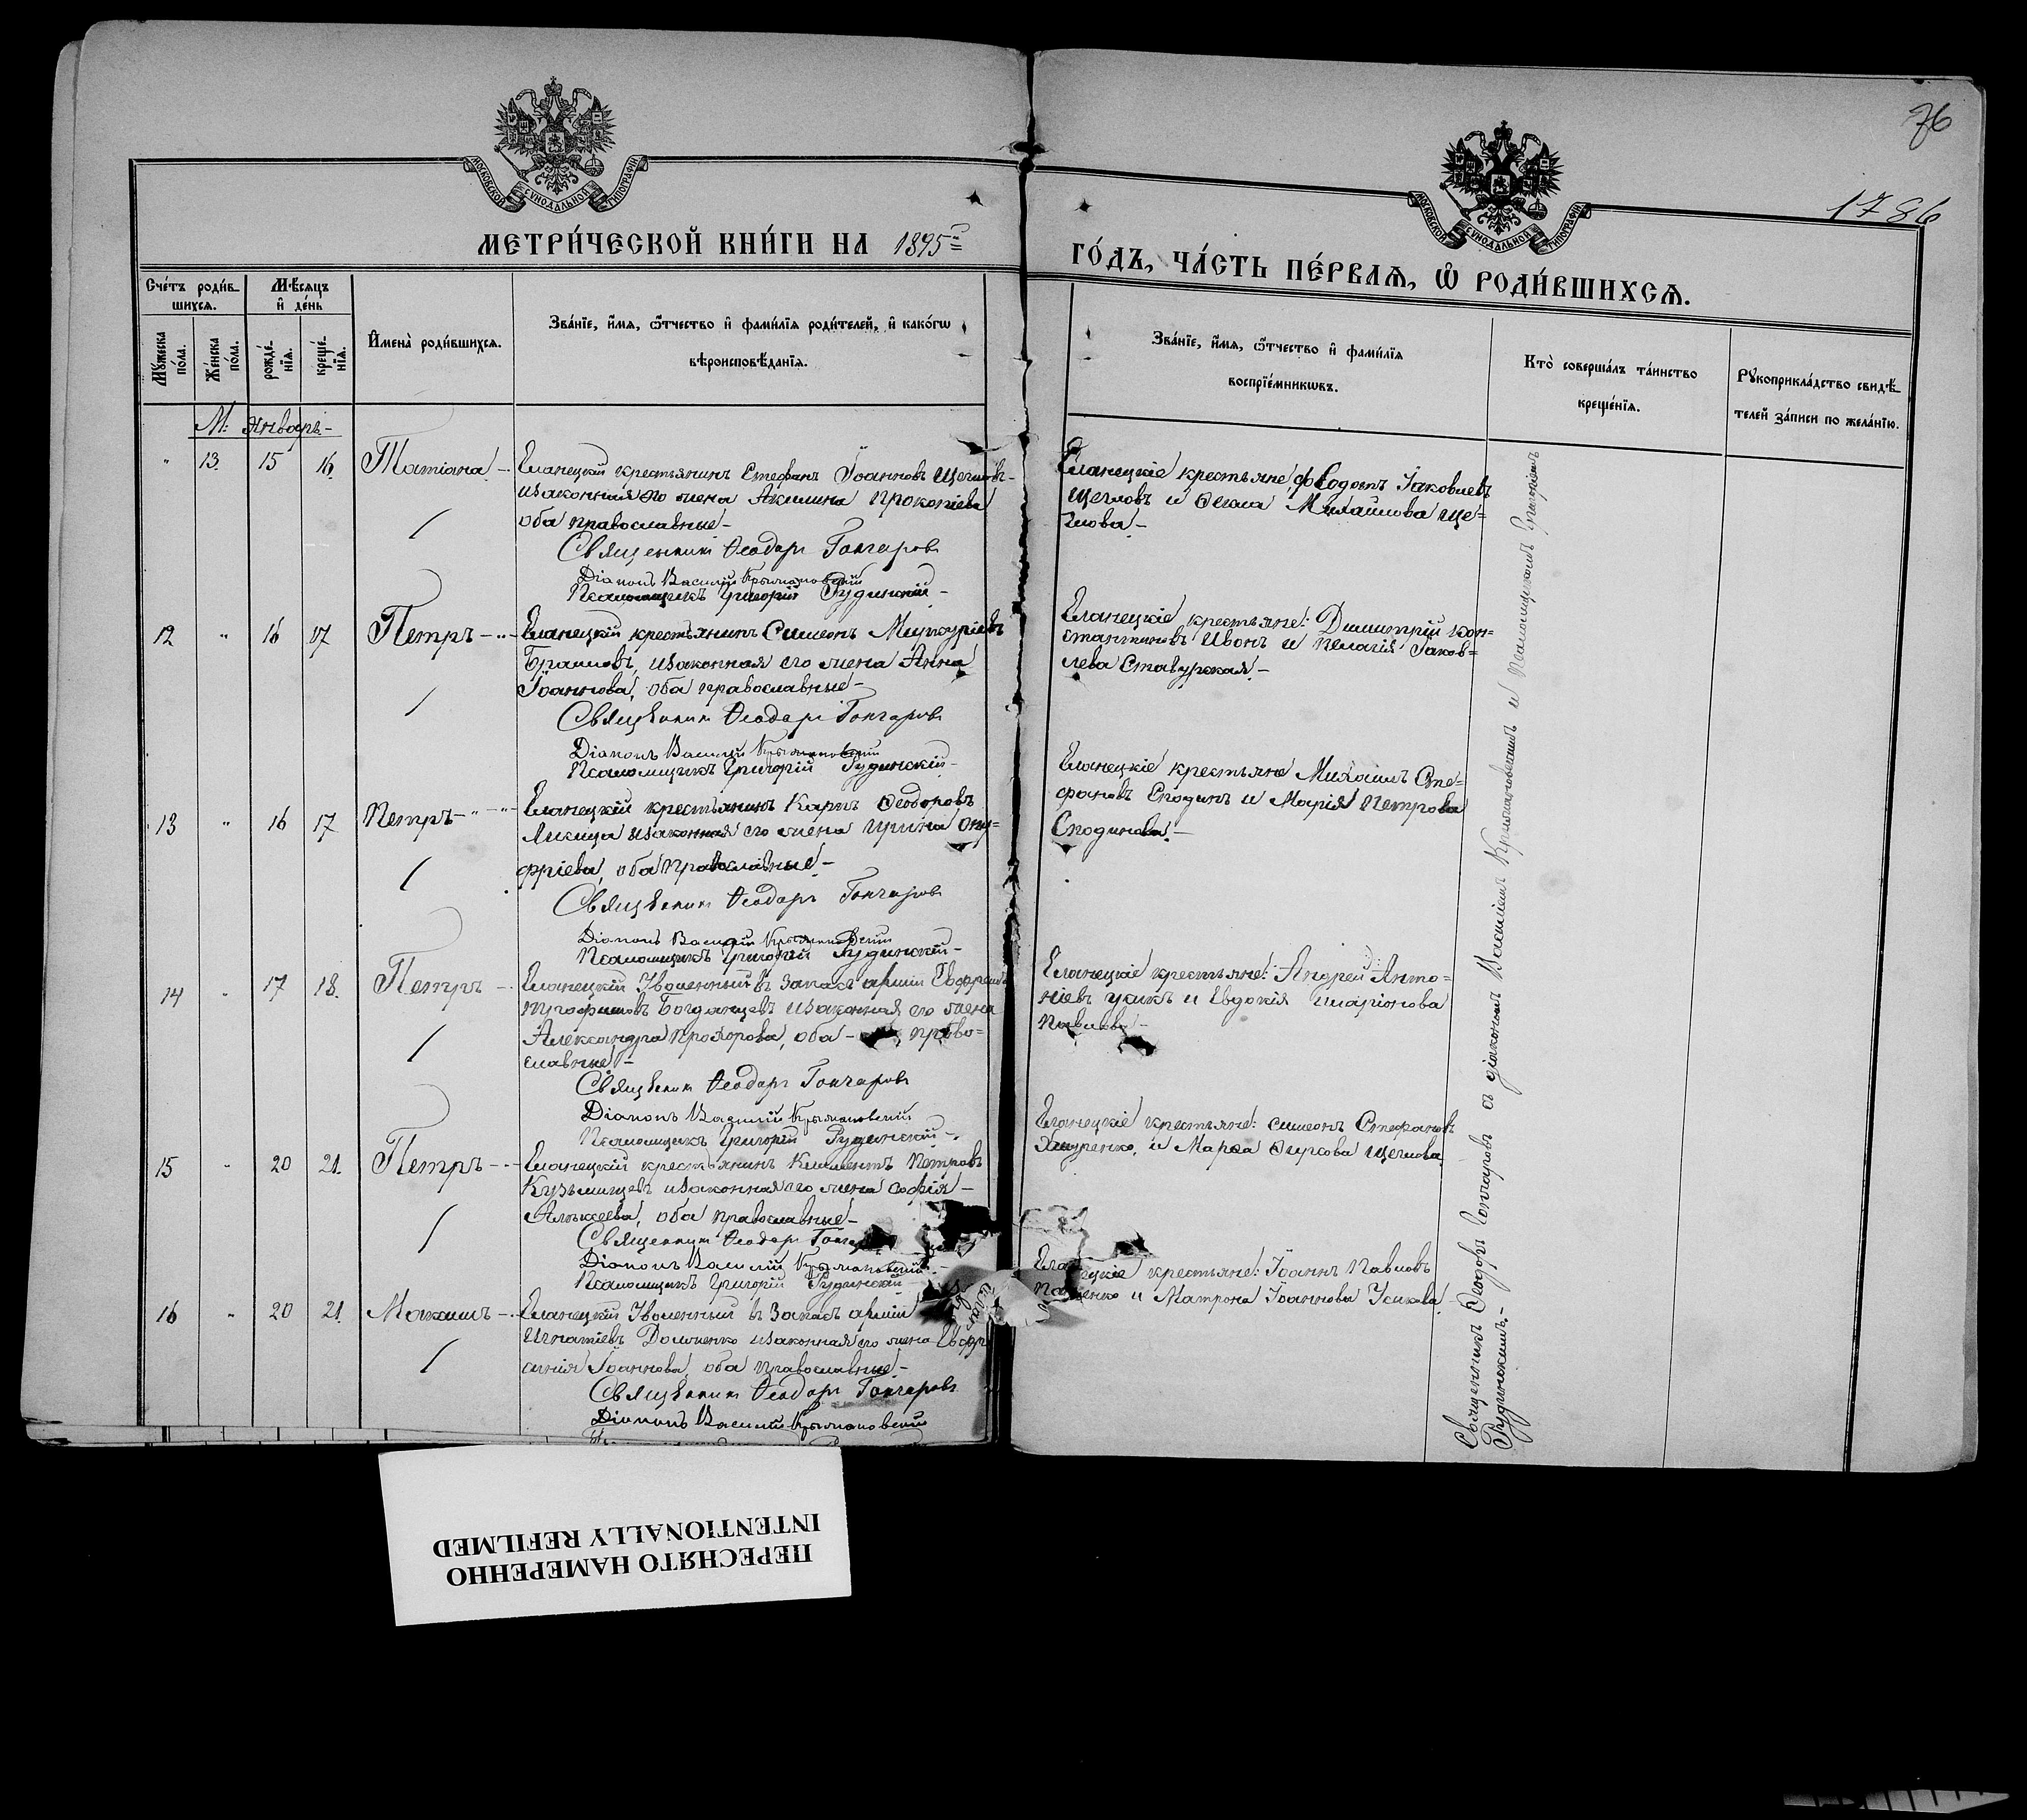 76
1786
МОСКОВСКОЙ СУНОДАЛЬНОЙ ТИПОГРАФІИ
МОСКОВСКОЙ СУНОДАЛЬНОЙ ТИПОГРАФІИ
МЕТРИ́ЧЕСКОЙ КНИ́ГИ НА 1895й
ГО́ДЪ, ЧА́СТЬ ПЕ́РВАѦ, Ѡ҆ РОДИ́ВШИХСѦ.
Сче́тъ роди́в-
шихсѧ.
Мѣ́сѧцъ
и҆ де́нь
Мꙋ́жеска по́ла.
Же́нска по́ла.
рожде́-нїѧ.
креще́-нїѧ.
И҆мена̀ роди́вшихсѧ.
Зва́нїе, и҆́мѧ, ѻ҆́тчество и҆ фами́лїѧ роди́телей, и҆ како́гѡ
вѣроисповѣ́данїѧ.
Зва́нїе, и҆́мѧ, ѻ҆́тчество и҆ фами́лїѧ
воспрїе́мникѡвъ.
Кто̀ соверша́лъ та́инство
креще́нїѧ.
Рꙋкоприкла́дство свидѣ́-
телей за́писи по жела́нїю.
М: Январь.-
" 13. 15 16. Татіана - Еланецкій крестьянинъ Стефанъ Іоанновъ Щегловъ-
и законная его жена Акилина Прокопіева
оба православные-
Священникъ Ѳеодоръ Гончаровъ
Діаконъ Василій Крыжановскій
Псаломщикъ Григорій Рудинскій -
Еланецкіе крестьяне, Ѳеодотъ Іаковлевъ
Щегловъ и Ѳекла Михайлова Ще=
глова.-
12 " 16 17 Петръ - Еланецкій крестьянинъ Симеонъ Меркуріевъ
и законная его жена Анна
Іоаннова, оба православные-
Священникъ Ѳеодоръ Гончаровъ
Діаконъ Василій Крыжановскій
Псаломщикъ Григорій Рудинскій-
Еланецкіе крестьяне: Димитрій Кон=
стантиновъ Ивонъ и Пелагія Іаков=
лева Ставурская.-
13 " 16 17 Петръ - Еланецкій крестьянинъ Карпъ Ѳеодоровъ
и законная его жена Ирина Ону=
фріева, оба православные.-
Священникъ Ѳеодоръ Гончаровъ
Діаконъ Василій Крыжановскій
Псаломщикъ Григорій Рудинскій-
Еланецкіе крестьяне Михаилъ Сте=
фановъ Сподинъ и Марія Петрова
Сподинова.-
14 " 17 18. Петръ - Еланецкій Уволенный въ запасъ арміи
Трофимовъ Богданцевъ и законная его жена
Александра Прохорова, оба - право=
славные.-
Священникъ Ѳеодоръ Гончаровъ
Діаконъ Василій Крыжановскій
Псаломщикъ Григорій Рудинскій-
Еланецкіе крестьяне: Андрей Анто=
ніевъ Усикъ и Евдокія Иларіонова
Павлова-
15 " 20 21. Петръ - Еланецкій крестьянинъ Климентъ Петровъ
Кузьминцевъ и законная его жена Софія-
Алексеева, оба православные-
Священникъ Ѳеодоръ
Діаконъ Василій Крыжановскій-
Псаломщикъ Григорій Рудинскій
Еланецкіе крестьяне: Симеонъ Стефановъ
и Марѳа Щеглова.
16 " 20 21. Максимъ - Еланецкій Уволенный въ запасъ арміи
Игнатіевъ и законная его жена Евфр
Іоаннова, оба православные-
Священникъ Ѳеодоръ Гончаровъ
Діаконъ Василій Крыжановскій
крестьяне: Іоаннъ Павловъ
и Матрона Іоаннова Усикова.
Священникъ Ѳеодоръ Гончаровъ съ діакономъ Василіемъ Крыжановскимъ и Псаломщикомъ Григоріемъ
Рудинскимъ.-
ПЕРЕСНЯТО НАМЕРЕННО
INTENTIONALLY REFILMED